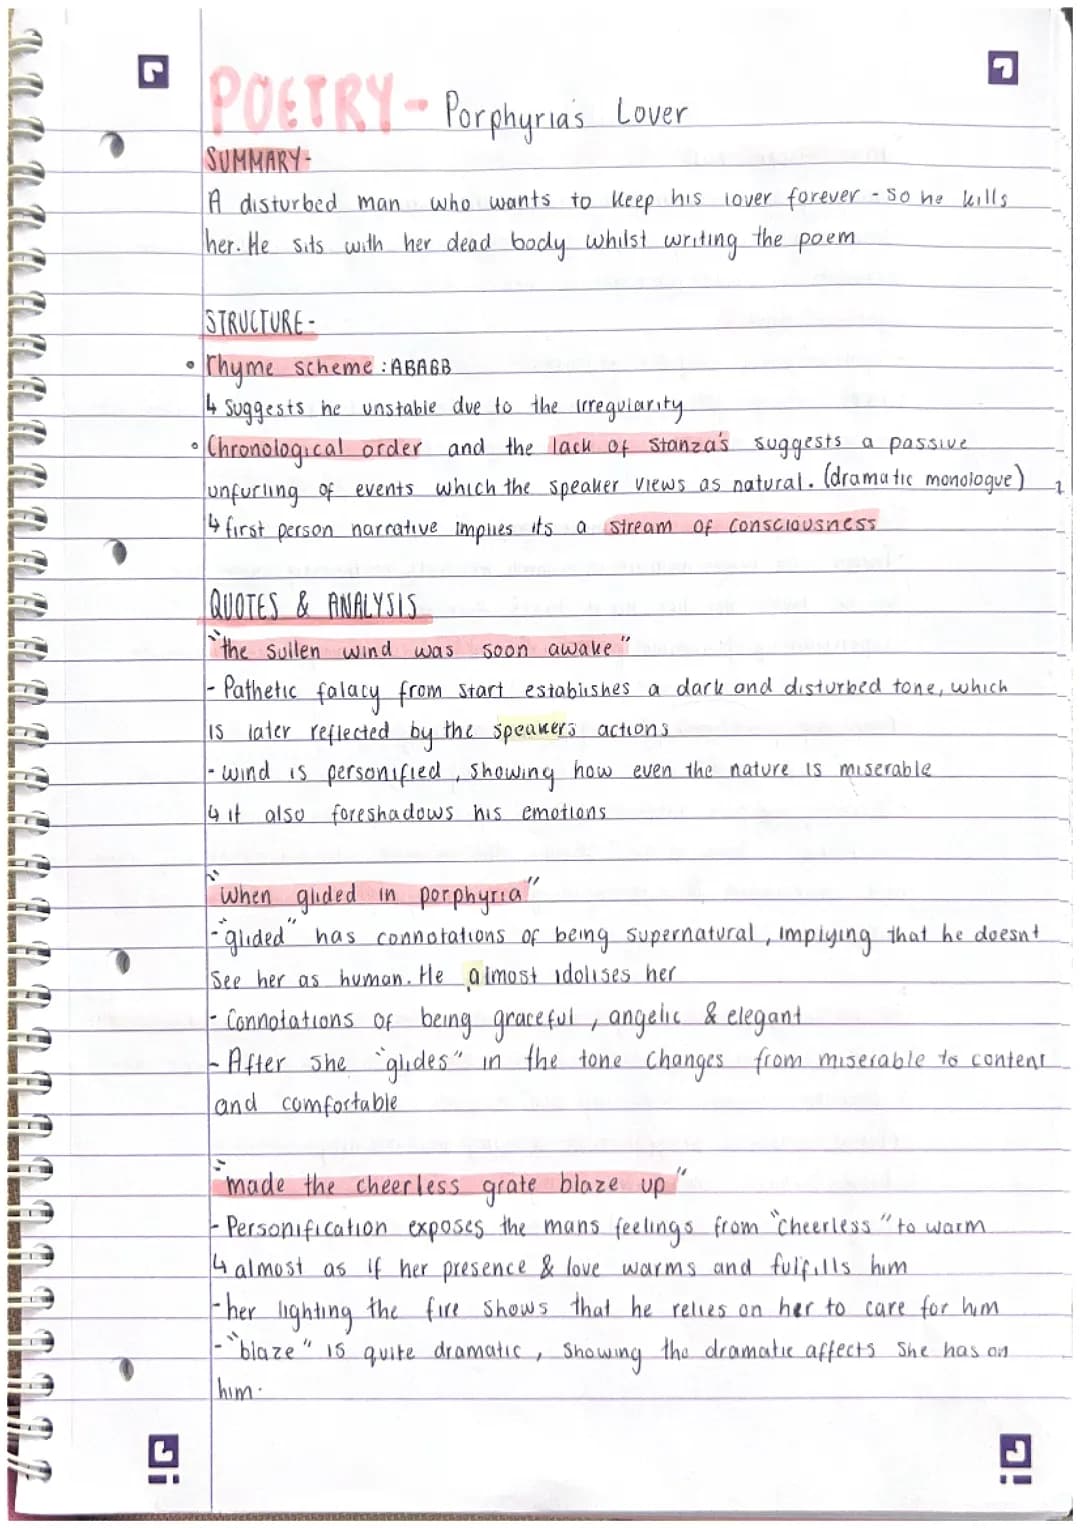 POETRY - Porphyria's Lover
SUMMARY-
A disturbed man who wants to keep his lover forever - so he kills
her. He sits with her dead body whilst writing the poem
STRUCTURE -
• rhyme scheme : ABABB
↳ suggests he unstable due to the irregularity
• Chronological order and the lack of stanza's suggests a passive
unfurling of events which the speaker views as natural. (dramatic monologue)
↳ first person narrative implies its a stream of consciousness
QUOTES & ANALYSIS
"the sullen wind was soon awake"
- Pathetic falacy from start establishes a dark and disturbed tone, which
is later reflected by the speakers actions
- wind is personified, showing how even the nature is miserable
↳ it also foreshadows his emotions
"when glided in porphyria"
- "glided" has connotations of being supernatural, implying that he doesnt
see her as human. He almost idolises her
- Connotations of being graceful, angelic & elegant
- After she "glides" in the tone changes from miserable to content
and comfortable
"made the cheerless grate blaze up"
- Personification exposes the mans feelings from "cheerless" to warm
↳ almost as if her presence & love warms and fulfills him
- her lighting the fire shows that he relies on her to care for him
- "blaze" is quite dramatic, showing the dramatic affects she has on
him.